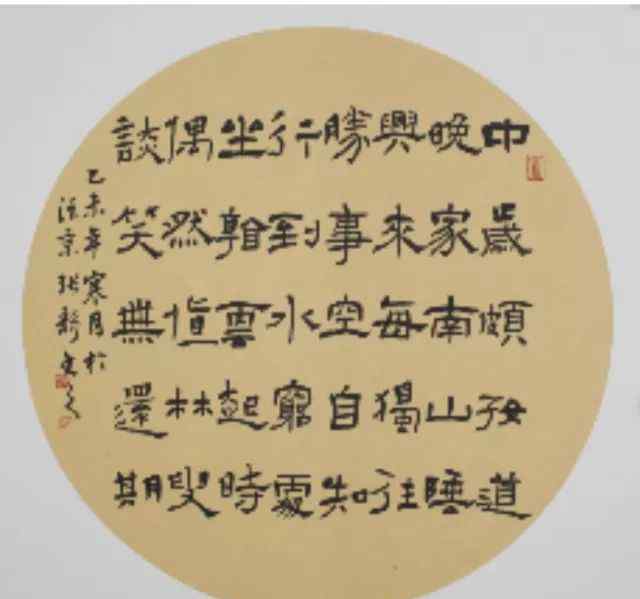 中歲頗好道
晚家南山陲
興來每獨往
勝事空自知
行到水窮處
坐看雲起時
偶然值林叟
談笑無還期
乙未年寒月於
京